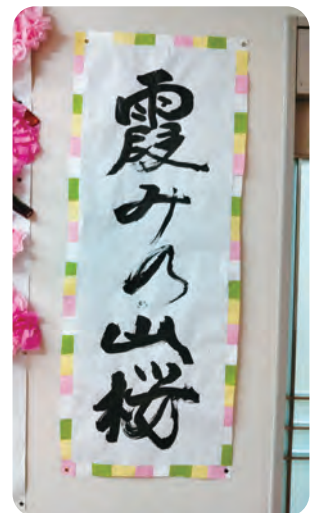 霞みの山桜